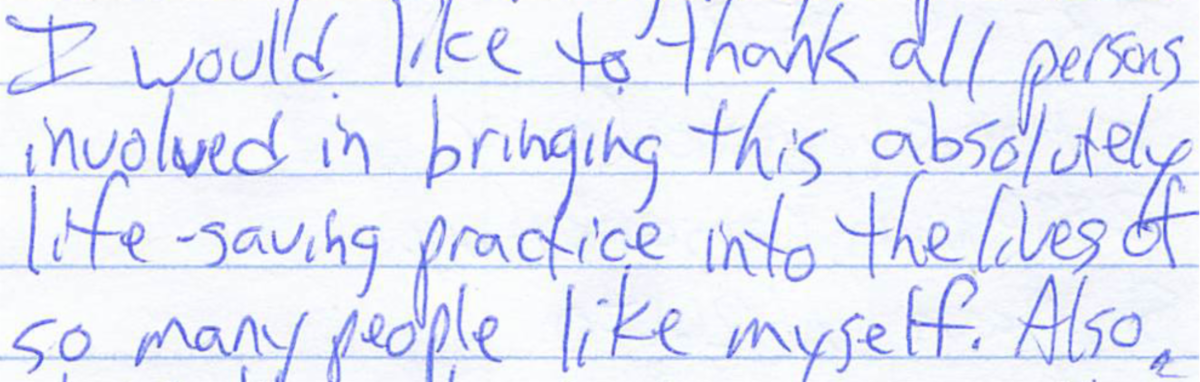 I would like to thank all persons
involved in bringing this absolutely
life-saving practice into the lives of
so many people like myself. Also,